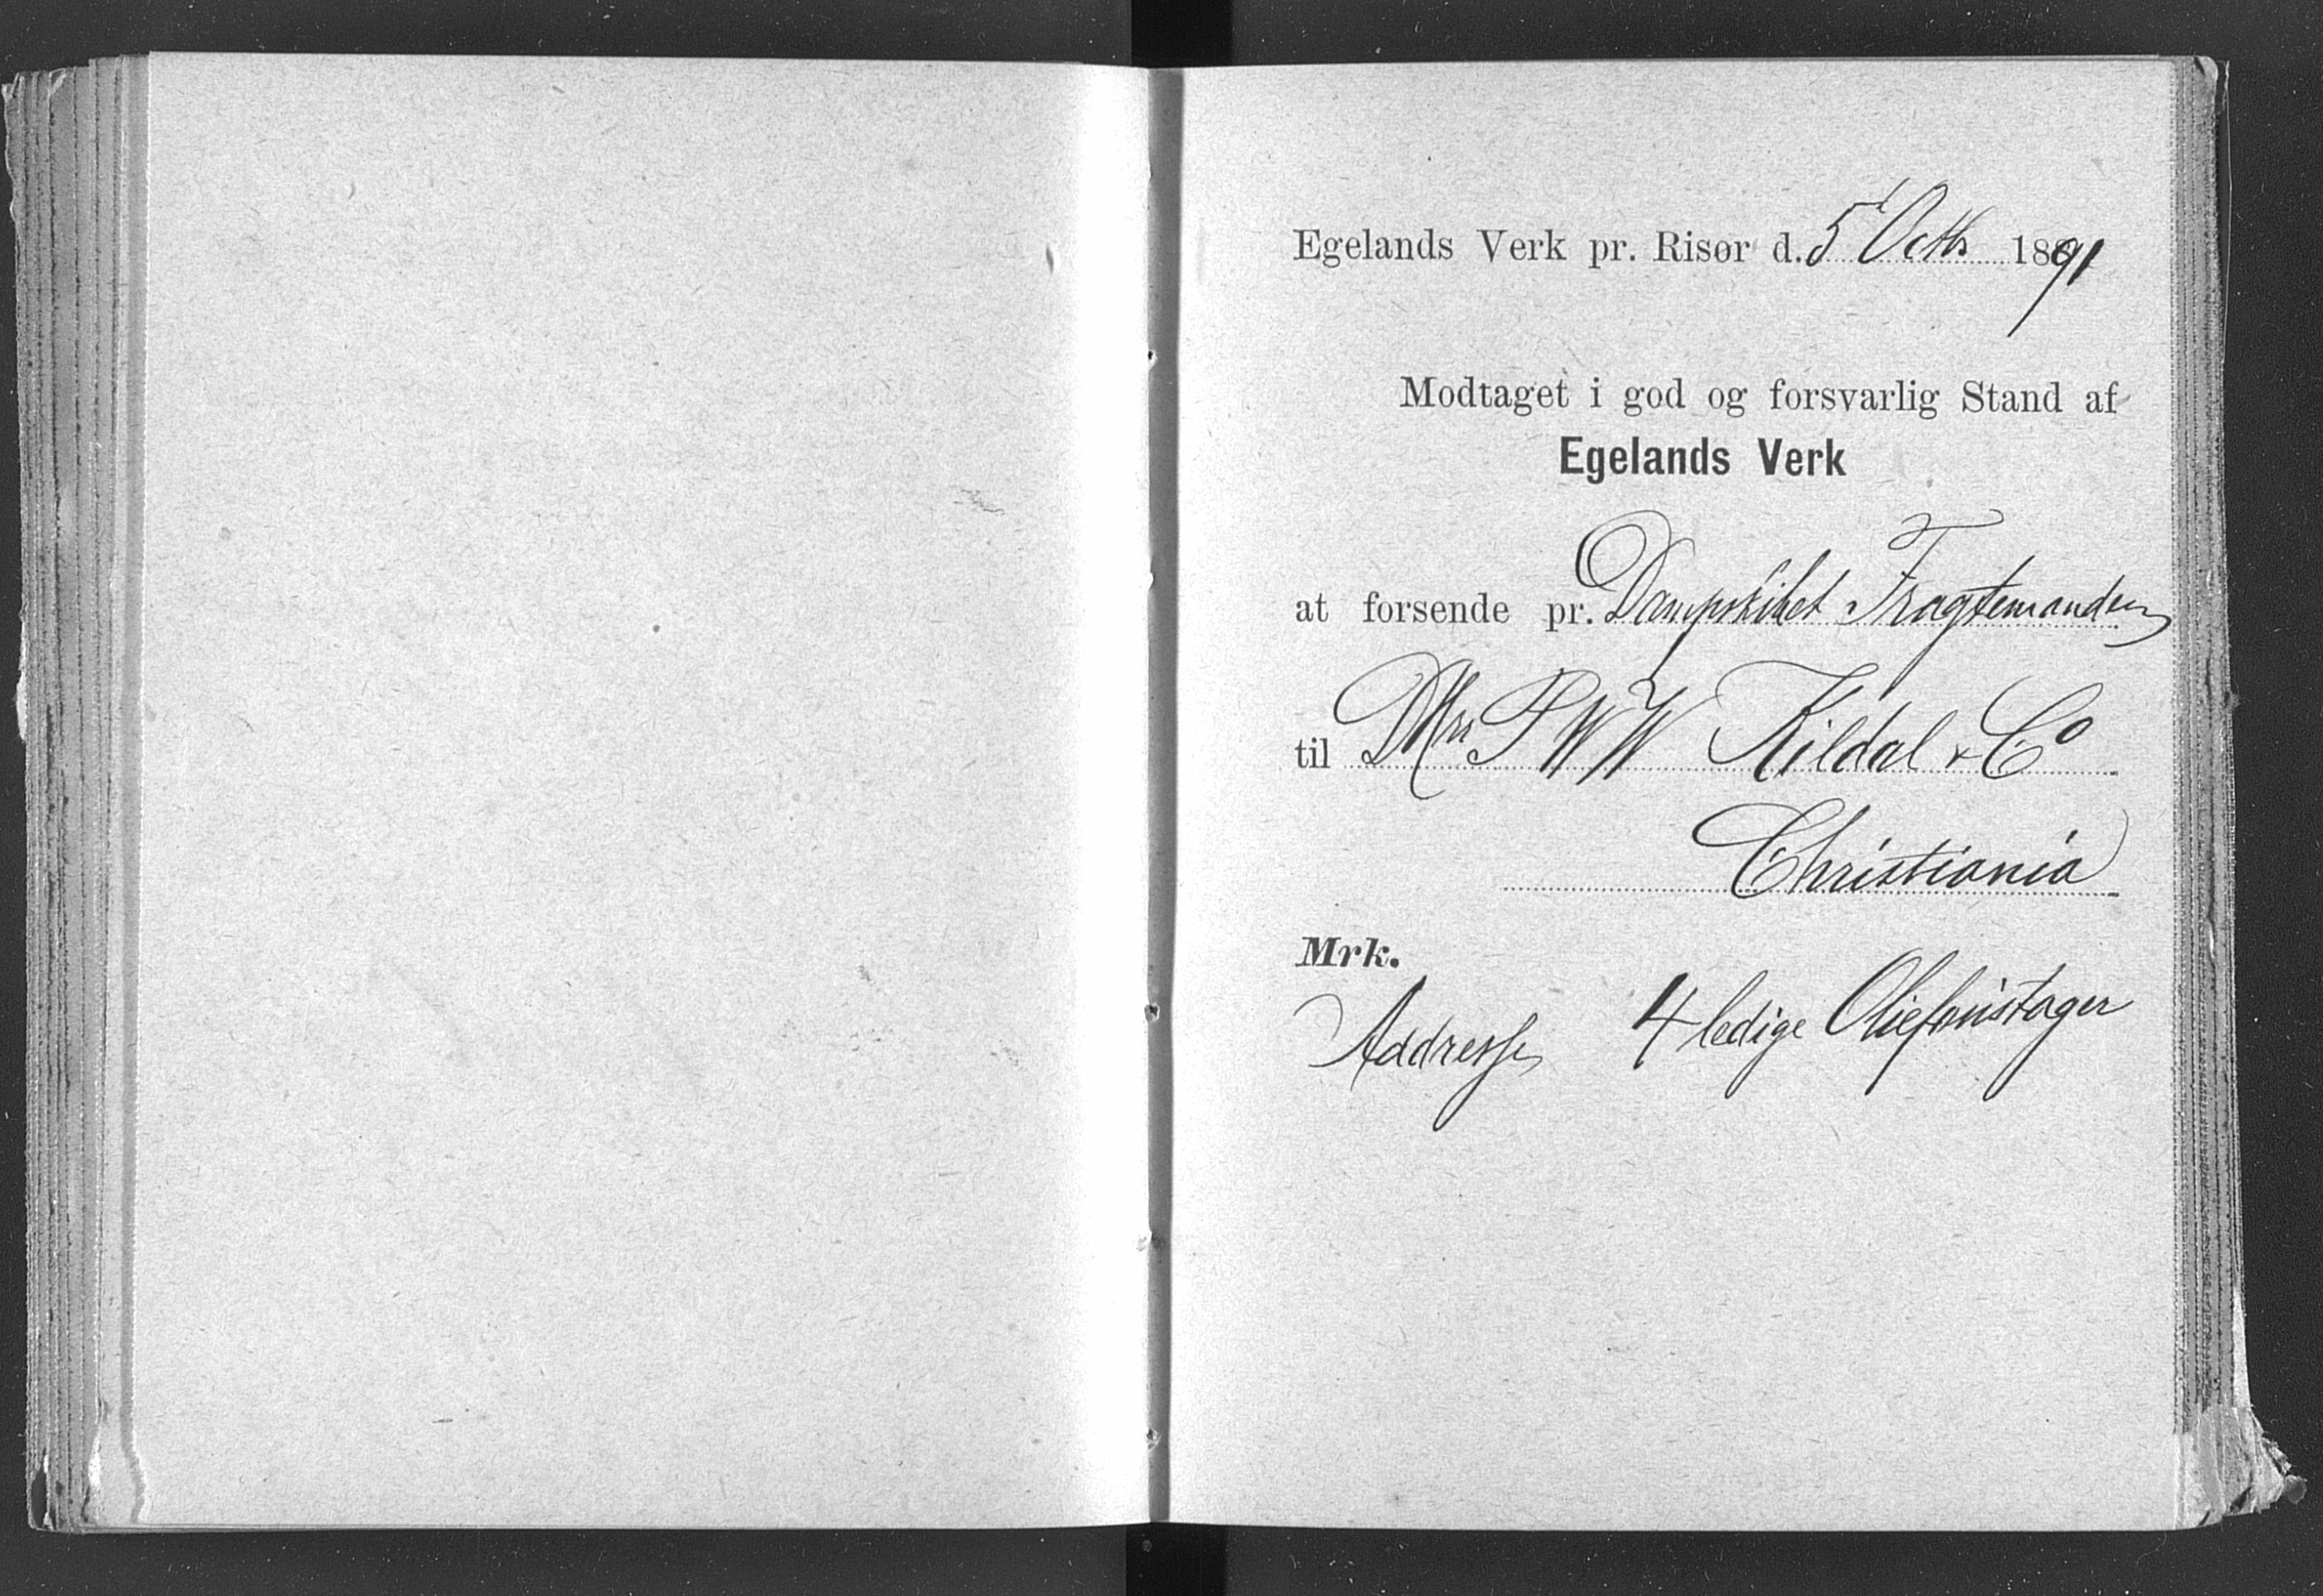 Egelands Verk pr. Risør d. 5 Octb. 1891
Modtaget i god og forsvarlig Stand af
Egelands Verk
at forsende pr. Dampskibet Fragtemanden
til DHrr P W W Kildal & Co
Christiania
Mrk.
Addresse 4 ledige Oliefouistager